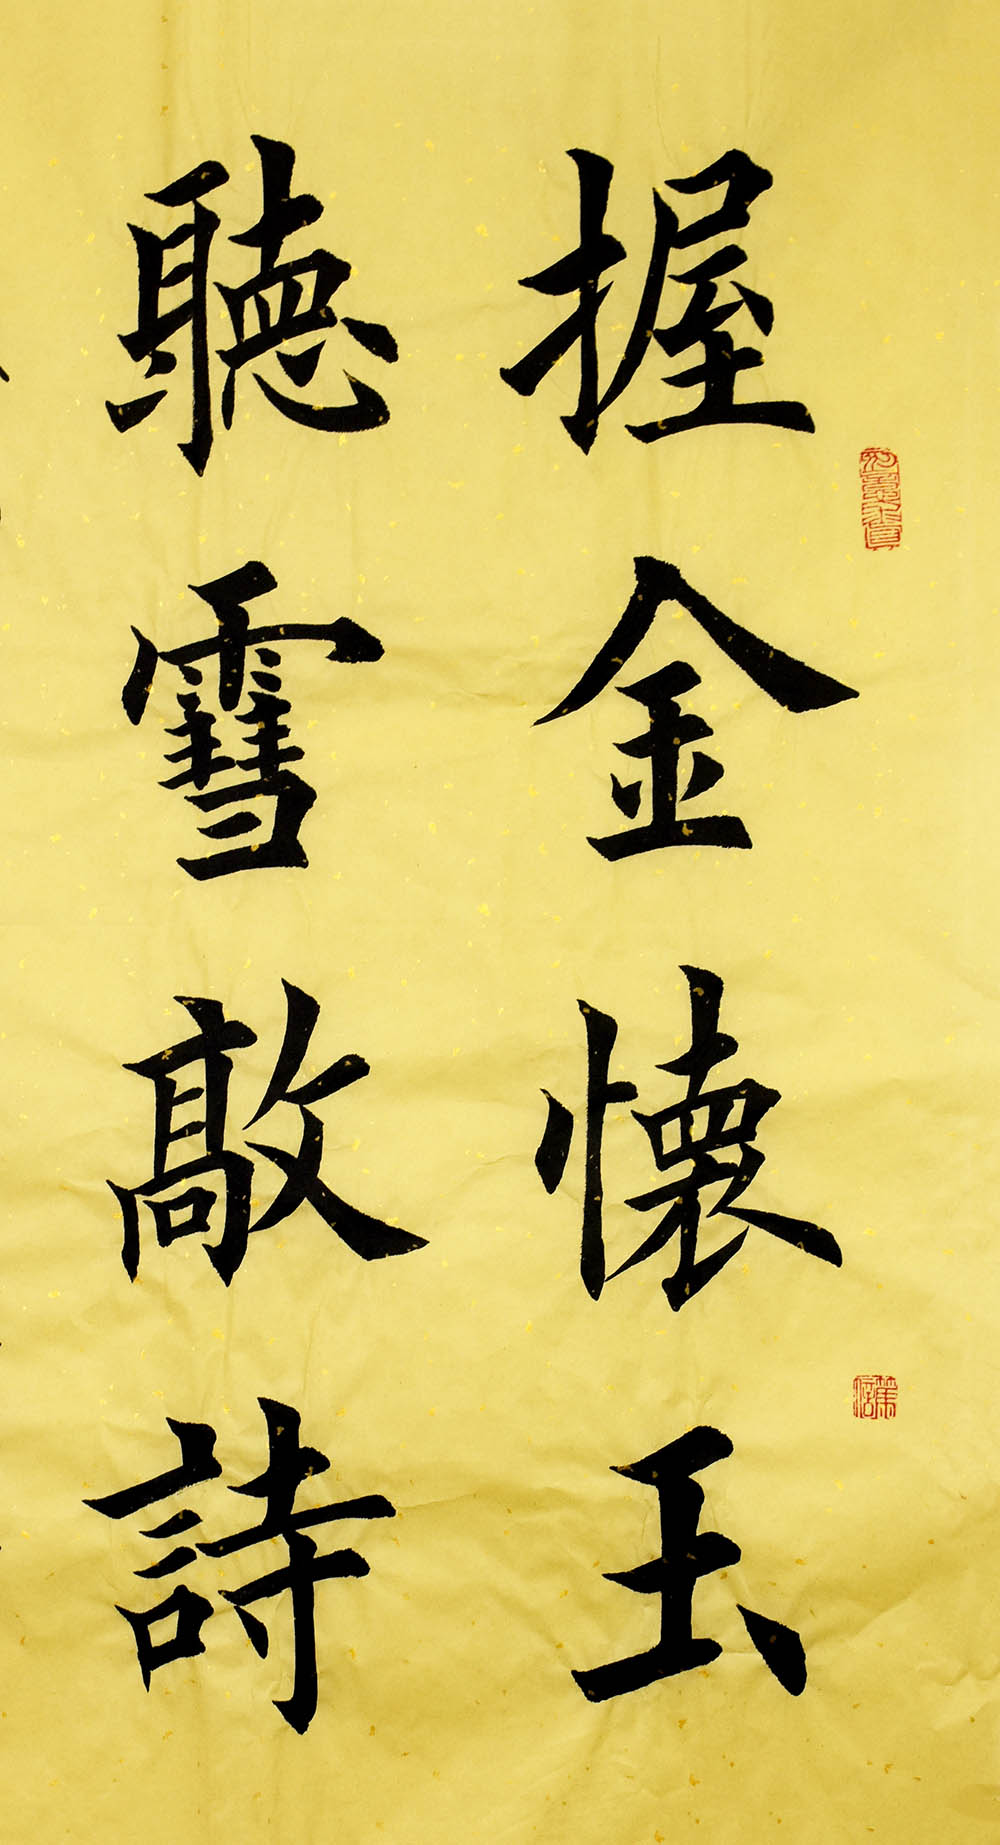 握金懷玉
聽雪敲詩